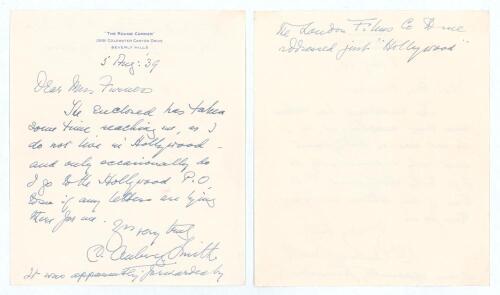 "THE ROUND CORNER"
COLDWATER CANYON DRIVE
BEVERLY HILLS
5 Aug: '39
Dear Mrs Furness
The enclosed has taken
some time reaching us, as I
do not live in Hollywood -
and only occasionally do
I go to the Hollywood P.O.
to see if any letters are lying
there for me.
Yrs very truly
C. Aubrey Smith
It was apparently forwarded by
the London Films Co to me
addressed just "Hollywood"